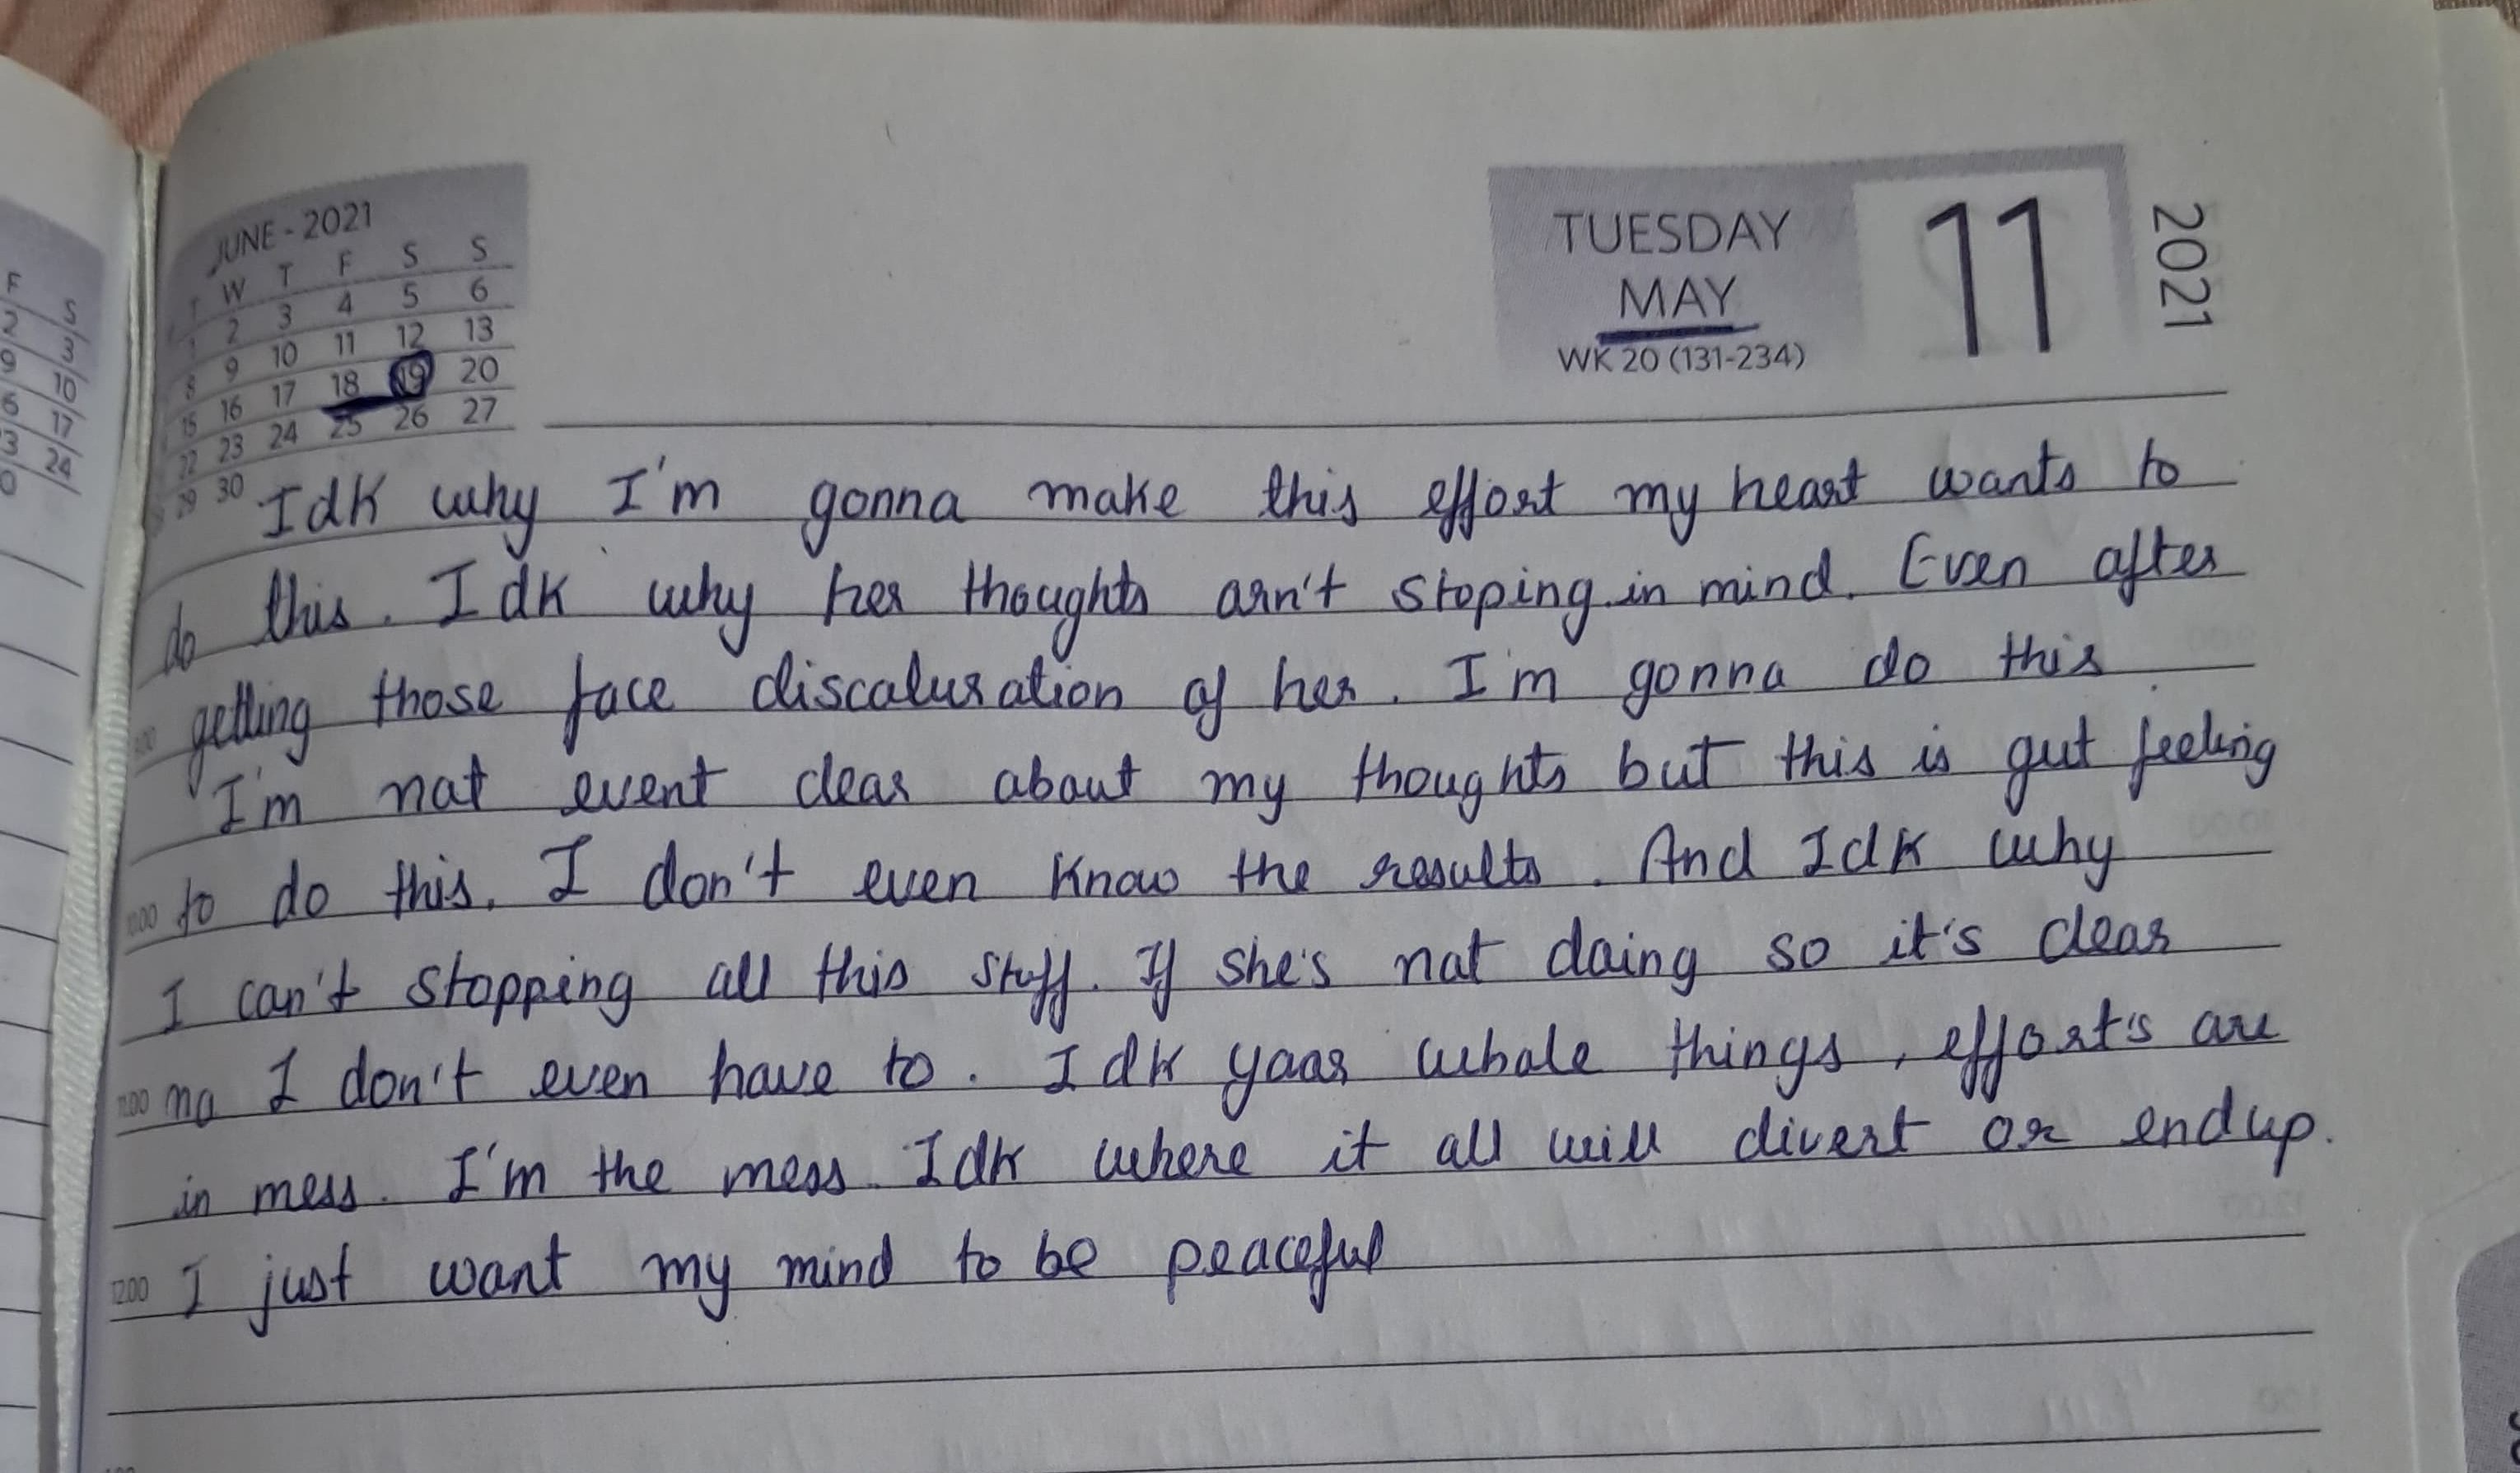 JUNE - 2021
T W T F S S
1 2 3 4 5 6
8 9 10 11 12 13
15 16 17 18 19 20
22 23 24 25 26 27
29 30
F S
2 3
9 10
6 17
3 24
0
TUESDAY
MAY
WK 20 (131-234)
11
2021
Idk why I'm gonna make this effort my heart wants to
do this. Idk why her thoughts arn't stoping in mind. Even after
getting those face discaluration of her. I'm gonna do this
I'm nat event clear about my thoughts but this is gut feeling
to do this. I don't even know the results. And Idk why
I can't stopping all this stuff. If she's nat daing so it's clear
na I don't even have to. Idk yaar whale things, effort's are
in mess. I'm the mess. Idk where it all will divert or end up.
12.00 I just want my mind to be peaceful